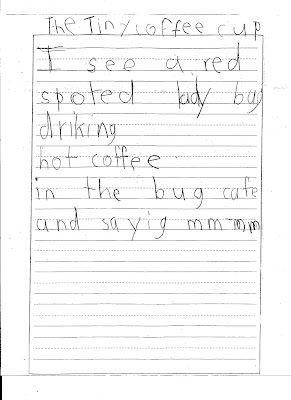 The Tiny coffee cup
I see a red
spoted lady bug
driking
hot coffee
in the bug cafe
and sayig mm-mm